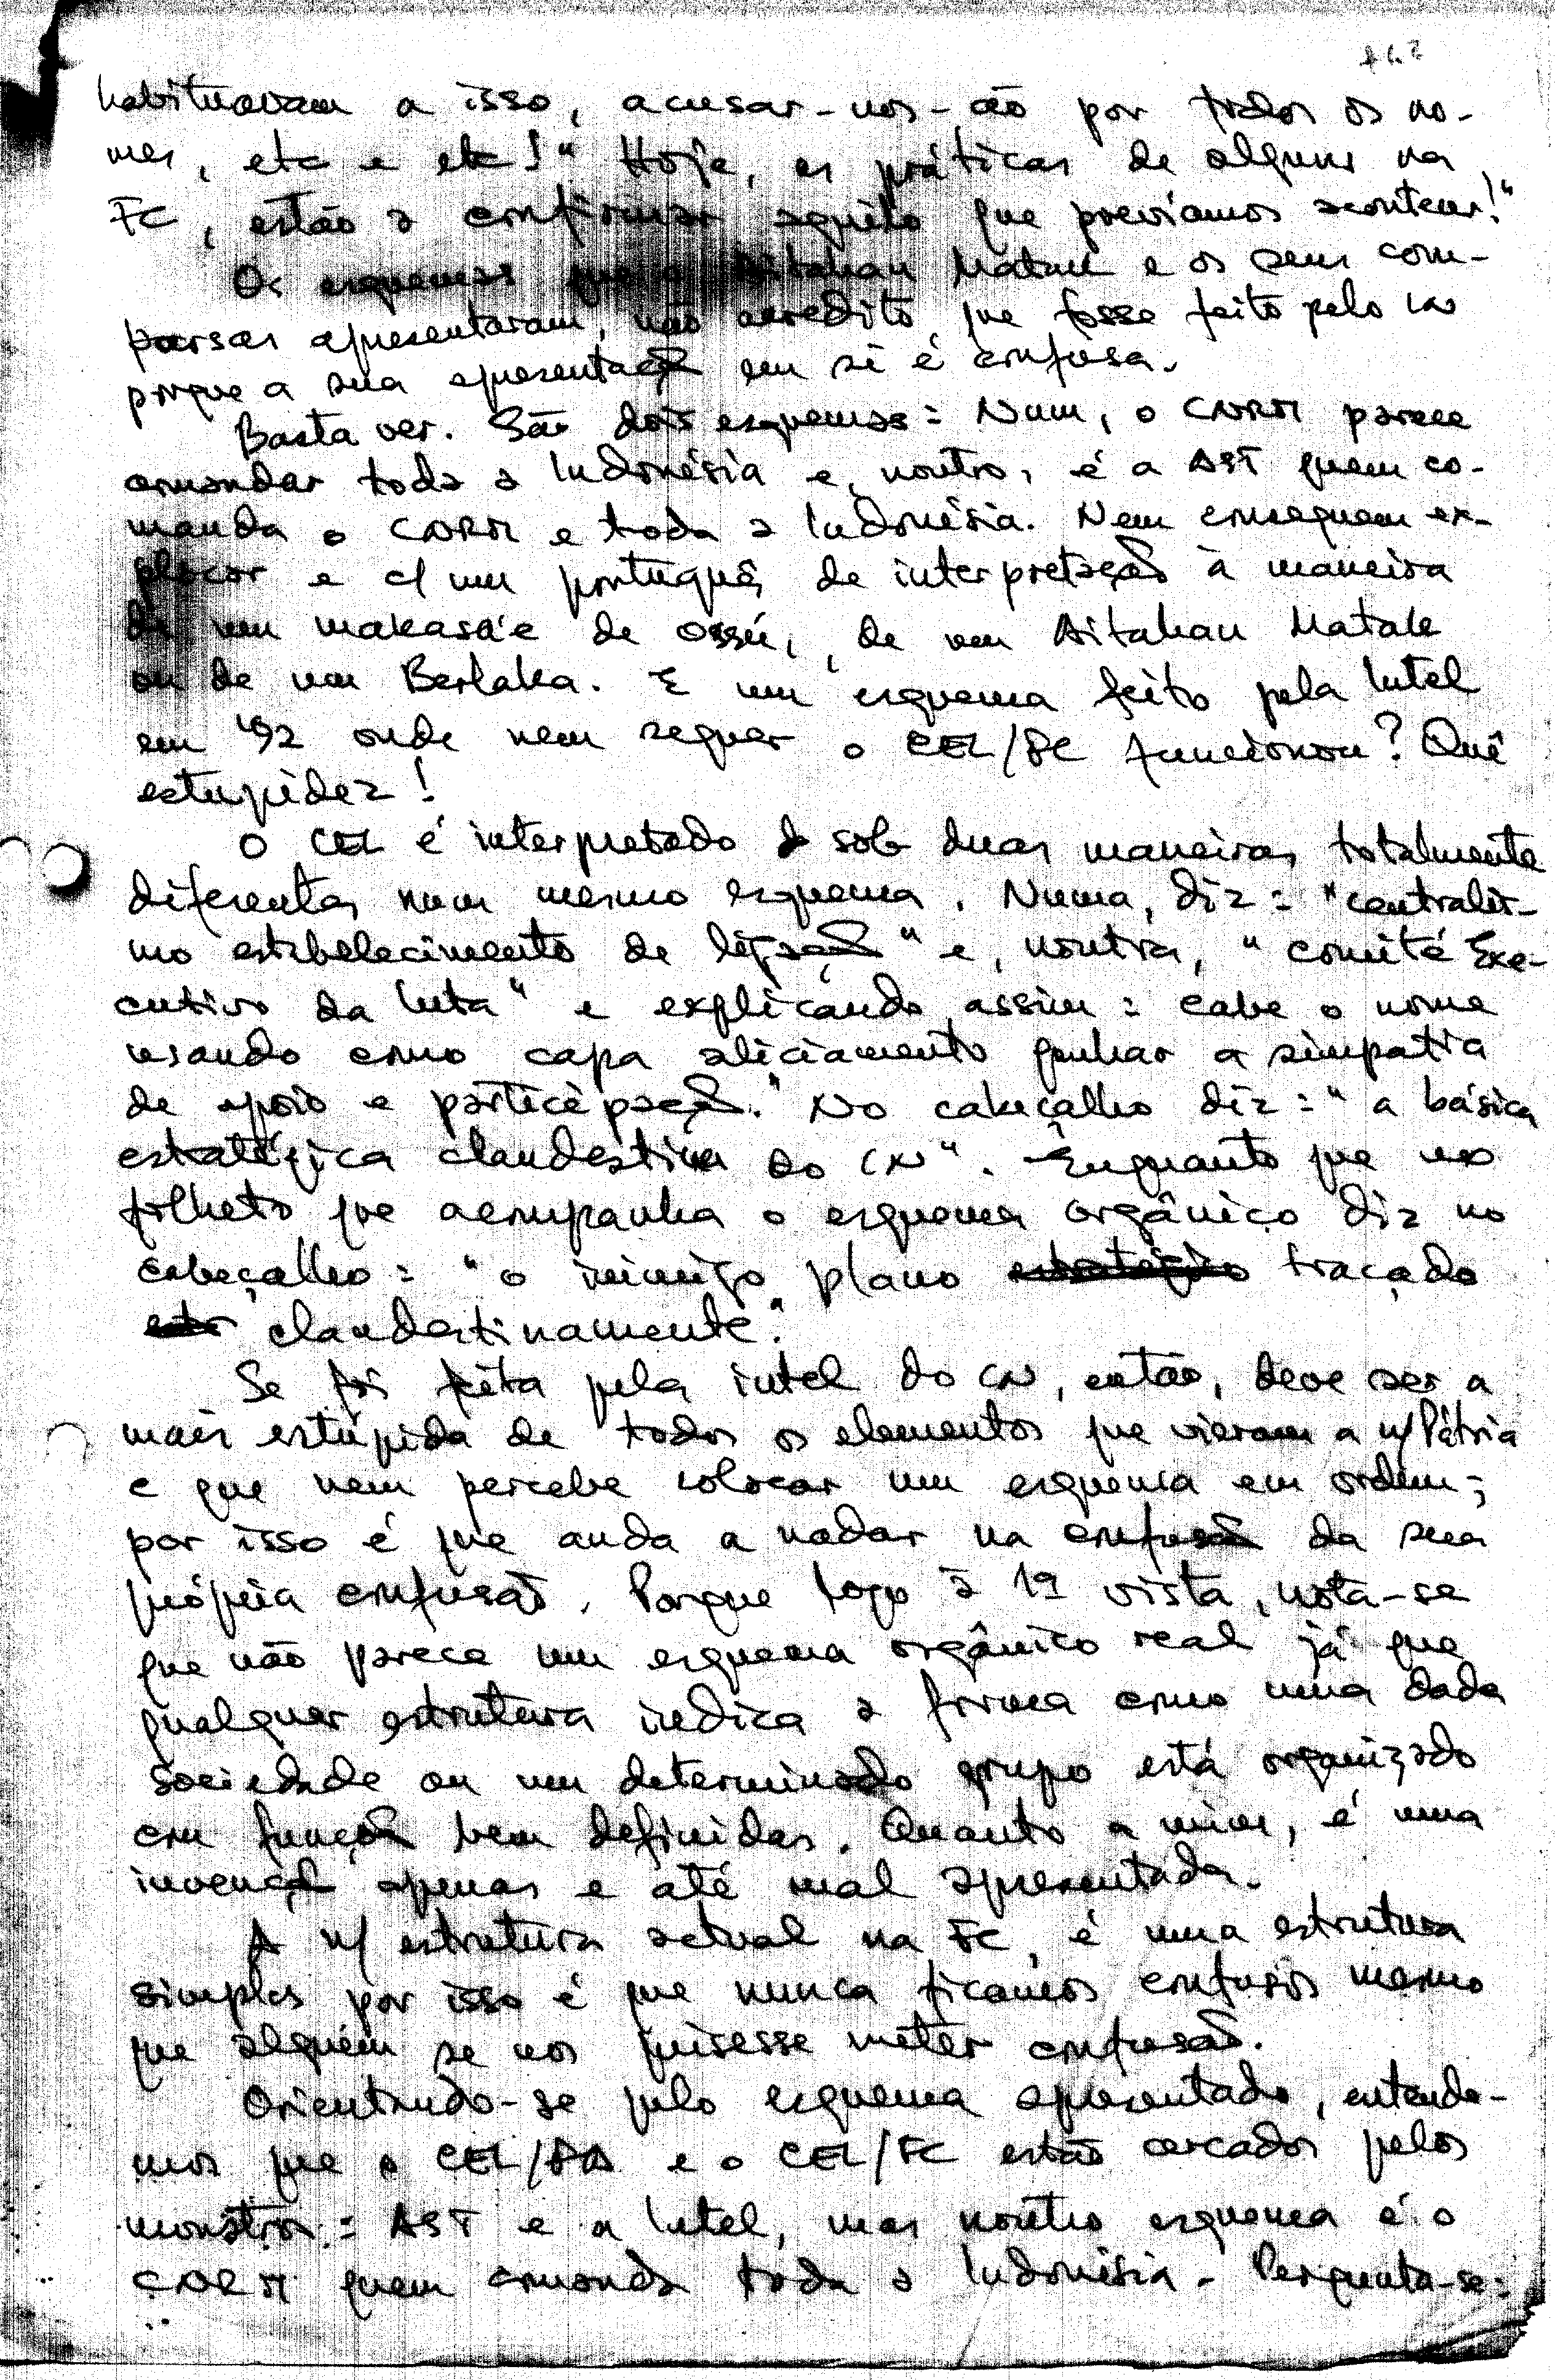 habituavam a isso, acusar-nos-ão por todos os no-
mes, etc e etc!" Hoje, as práticas de alguns na
FC, estão a confirmar aquilo que previamos acontecer!"
Os esquemas que o Aitahan Matak e os seus com-
parsas apresentaram, não acredito que fosse feito pelo CN
porque a sua apresentação em si é confusa.
Basta ver. São dois esquemas: Num, o CNRM parece
comandar toda a Indonésia e, noutro, é a AST quem co-
manda o CNRM e toda a Indonésia. Nem conseguem ex-
plicar e c/ um português de interpretação à maneira
de um makasa'e de Ossú, de um Aitahan Matak
ou de um Berlaka. E um esquema feito pela Intel
em '92 onde nem sequer o CEL/FC funcionou? Quê
estupidez!
O CEL é interpretado sob duas maneiras totalmente
diferentes num mesmo esquema. Numa, diz: "centralis-
mo estabelecimento de ligação" e, noutra, "comité Exe-
cutivo da luta" e explicando assim: cabe o nome
usando como capa aliciamento ganhar a simpatia
de apoio e participação." No cabeçalho diz: "a básica
estratégica clandestina do CN". Enquanto que no
folheto que acompanha o esquema orgânico diz no
cabeçalho: "o inimigo plano traçado
clandestinamente."
Se foi feita pela intel do CN, então, deve ser a
mais estúpida de todos os elementos que vieram a n/Pátria
e que nem percebe colocar um esquema em ordem;
por isso é que anda a nadar na confusão da sua
própria confusão. Porque logo à 1ª vista, nota-se
que não parece um esquema orgânico real já que
qualquer estrutura indica a forma como uma dada
sociedade ou um determinado grupo está organizado
em função bem definidas. Quanto a mim, é uma
invenção apenas e até mal apresentada.
A n/ estrutura actual na FC, é uma estrutura
simples por isso é que nunca ficámos confusos mesmo
que alguém se nos quisesse meter confusão.
Orientando-se pelo esquema apresentado, entende-
mos que o CEL/FA e o CEL/FC estão cercados pelos
monstros: AST e a Intel, mas noutro esquema é o
CNRM quem comanda toda a Indonésia. Pergunta-se: